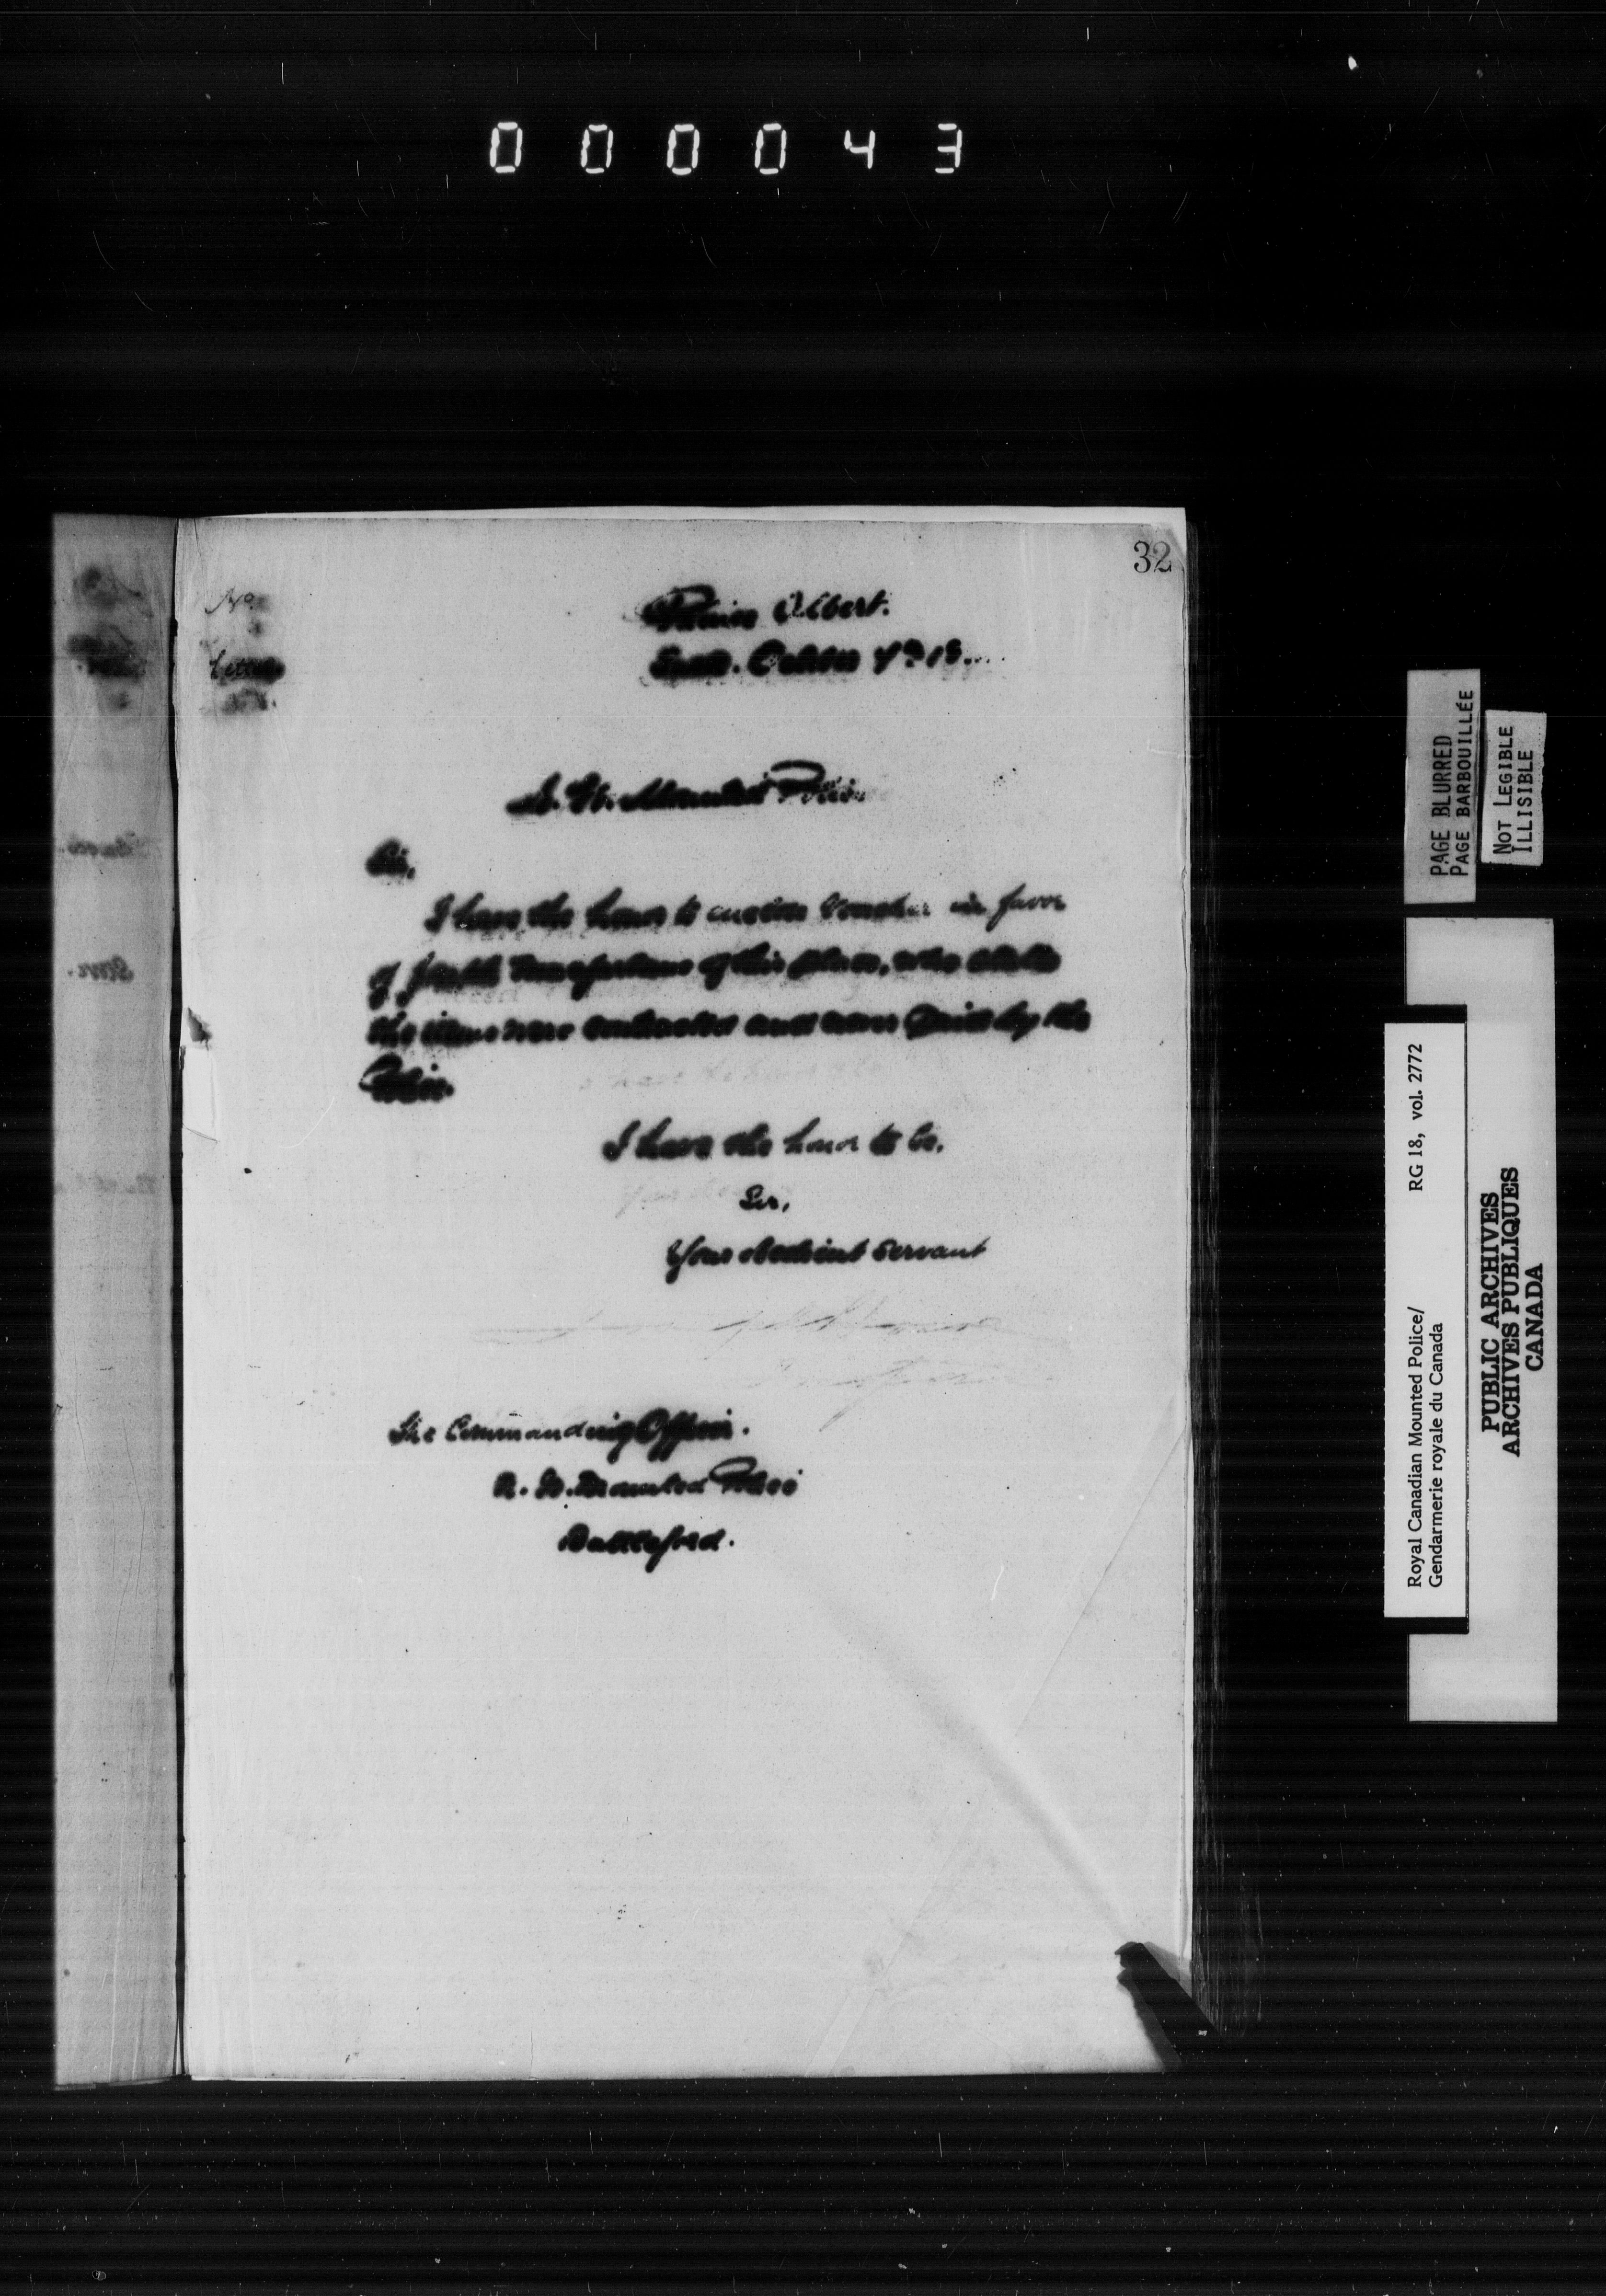 000043
32
No
Letter
Prince Albert.
Sask. October
N. W. Mounted Police.
Sir,
I have the honor to enclose Voucher in favor
of Joseph of this place, who states
the items were contracted and never paid by the
Police.
I have the honor to be,
Sir,
Your obedient Servant
The Commanding Officer.
N. W. Mounted Police
Battleford.
PAGE BLURRED
PAGE BARBOUILLÉE
NOT LEGIBLE
ILLISIBLE
Royal Canadian Mounted Police/ RG 18, vol. 2772
Gendarmerie royale du Canada
PUBLIC ARCHIVES
ARCHIVES PUBLIQUES
CANADA